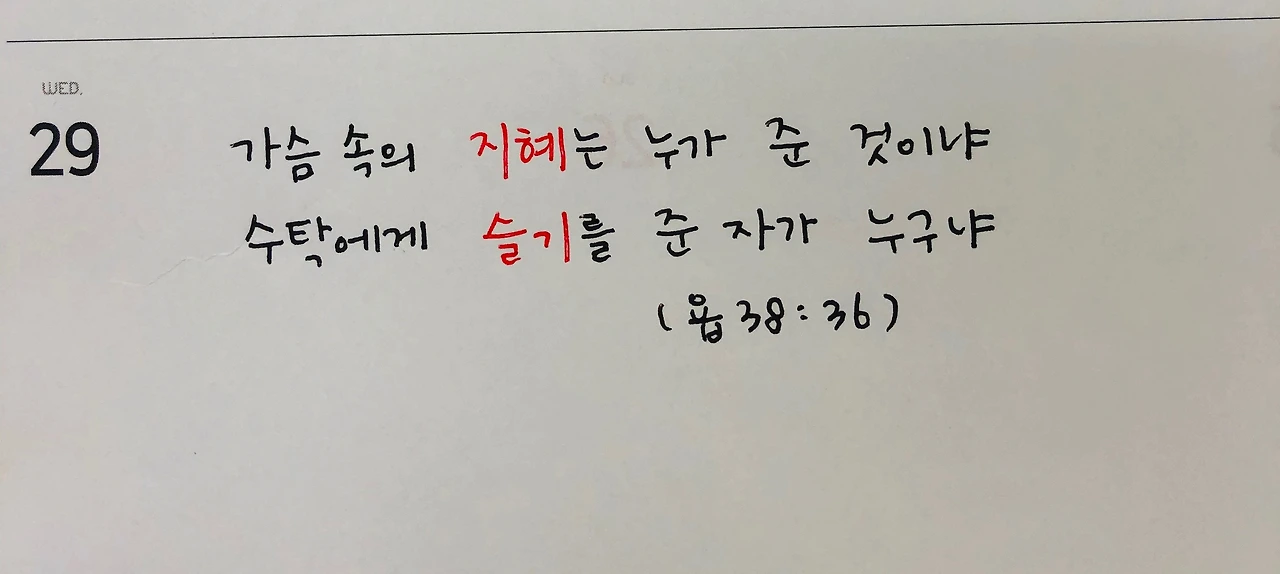 WED.
29
가슴 속의 지혜는 누가 준 것이냐
수탉에게 슬기를 준 자가 누구냐
(욥 38:36)